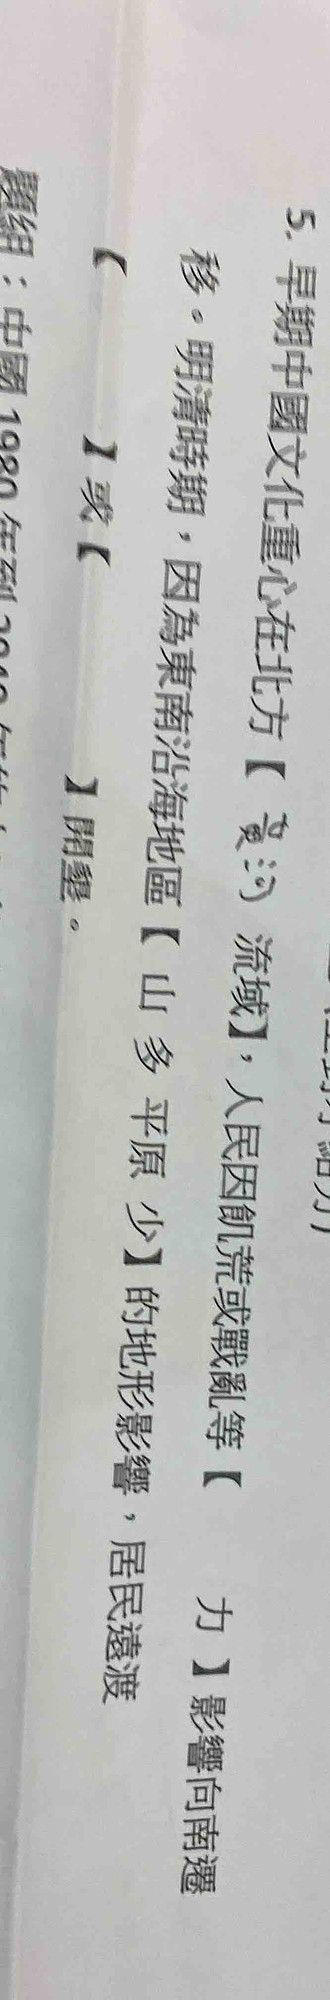 5. 早期中國文化重心在北方【 黃河 流域】，人民因飢荒或戰亂等【 力 】影響向南遷
移。明清時期，因為東南沿海地區【 山 多 平原 少】的地形影響，居民遠渡
【 】或【 】開墾。
題組：中國1980年到